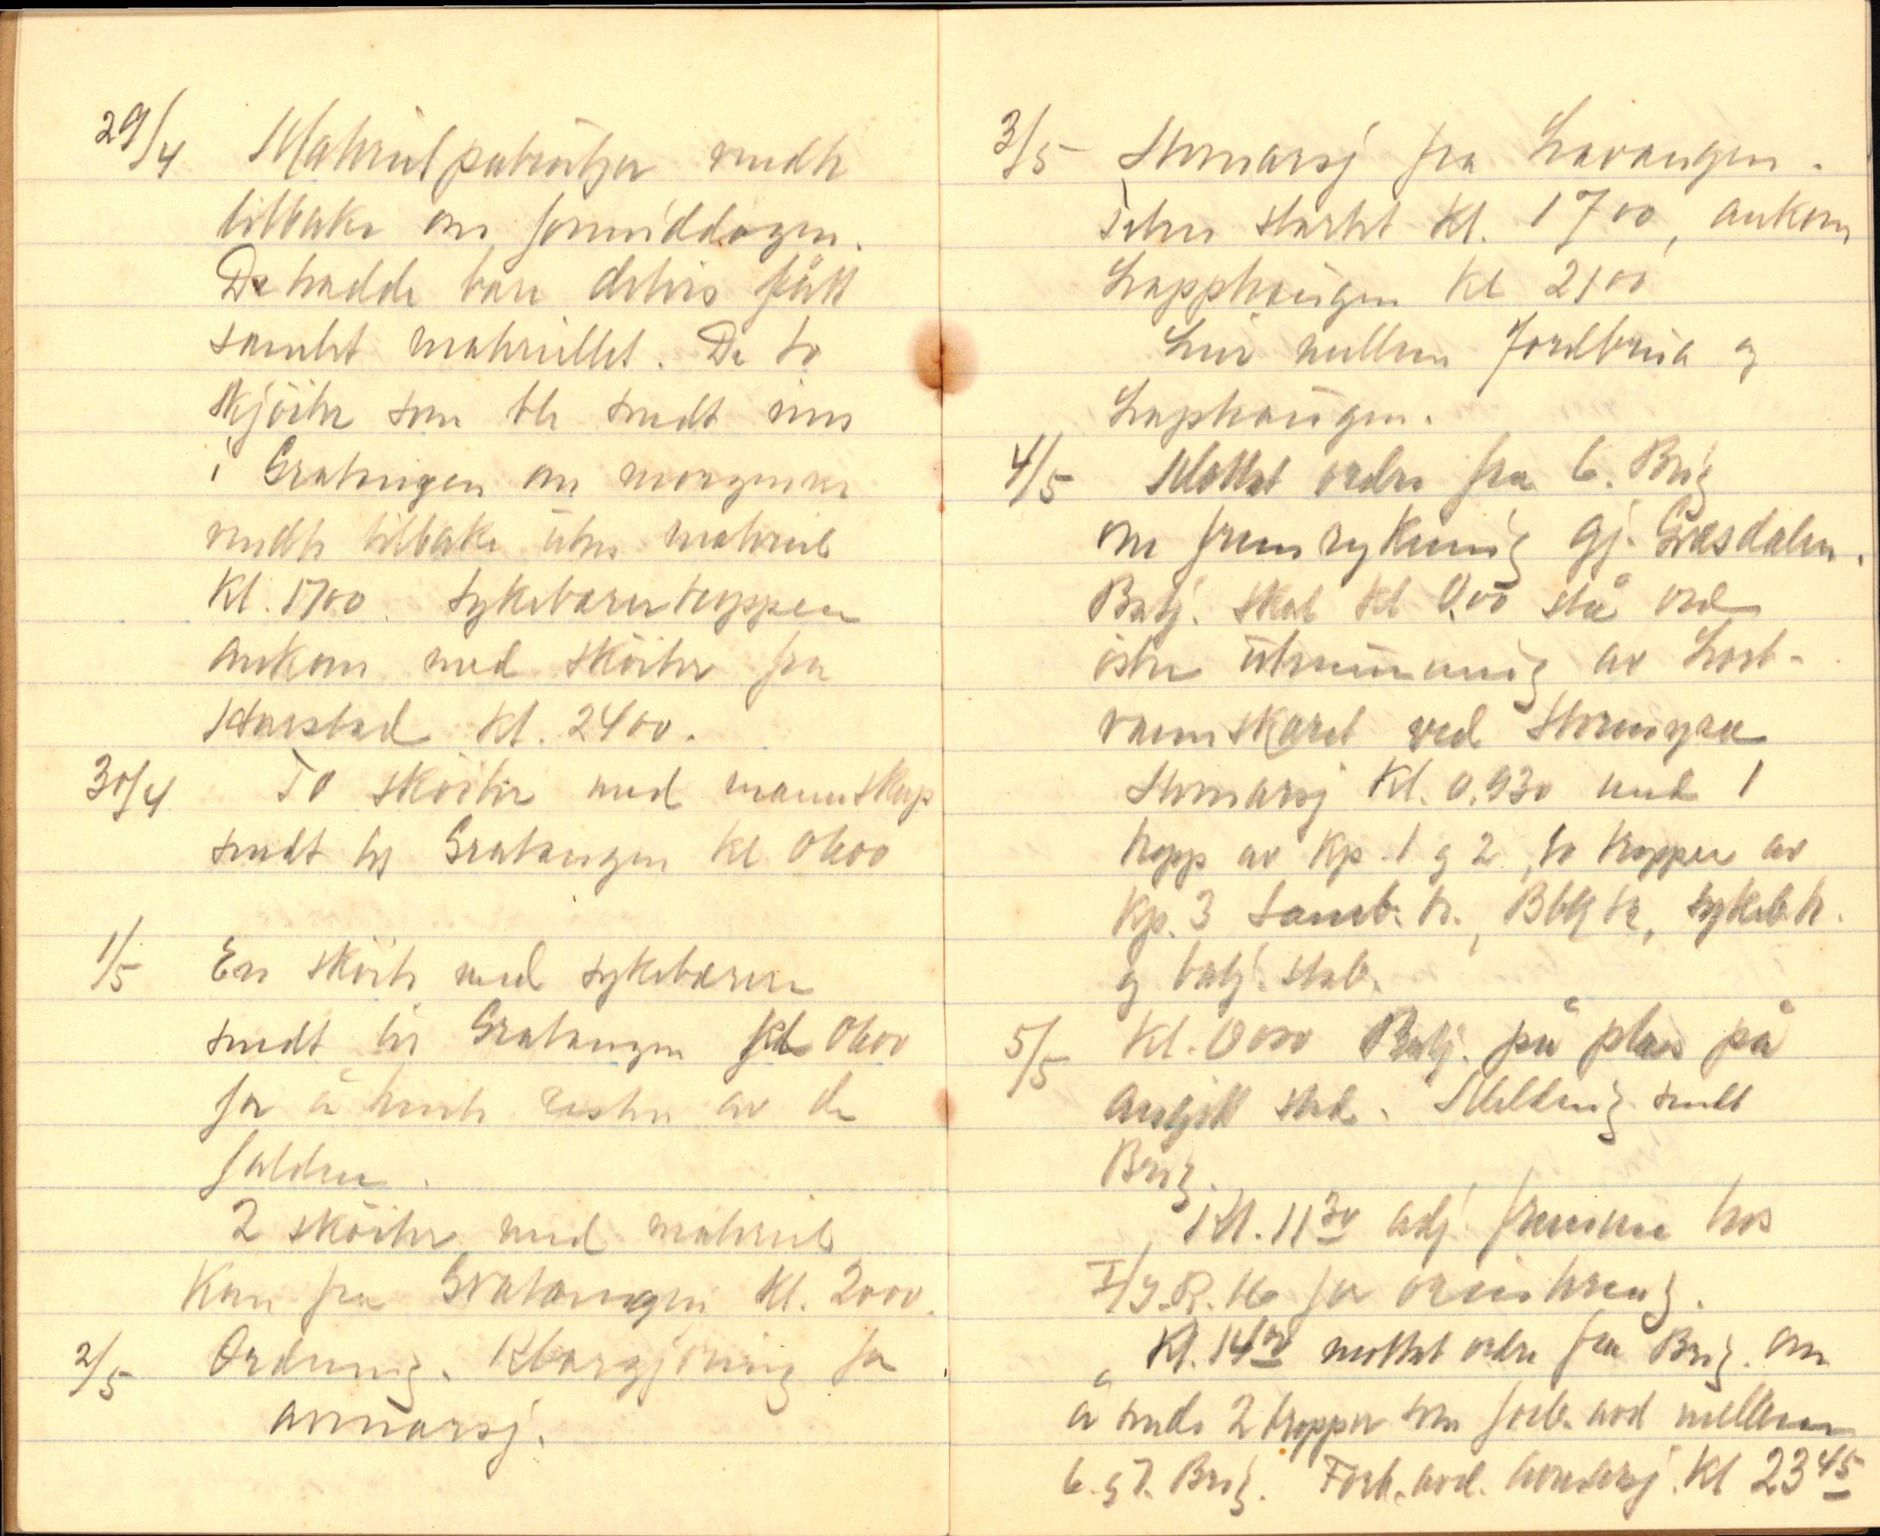 29/4 Materielpatruljer vendte
tilbake om formiddagen.
De hadde bare delvis fått
samlet materiellet. De to
skjöiter som ble sendt inn
i Gratangen om morgenen
vendte tilbake uten materiel
Kl. 1700. Sykebærertroppen
ankom med sköiter fra
Harstad kl. 2400.
30/4 To sköiter med mannskap
sendt til Gratangen kl 0600
1/5 En sköite med sykebærere
sendt til Gratangen kl 0600
for å hente resten av de
faldne.
2 sköiter med materiel
kom fra Gratangen kl. 2000.
2/5 Ordning. Klargjöring for
avmarsj.
3/5 Avmarsj fra Lavangen.
Teten startet kl. 1700, ankom
Lapphaugen kl 2100
Leir mellem Fordbrua og
Laphaugen.
4/5 Mottat ordre fra 6. Brig
om fremrykning gj. Græsdalen.
Batj. skal kl 0.00 stå ved
östre utmunning av Lort-
vannskaret ved Storemyra
Avmarsj kl. 0.930 med 1
tropp av Kp. 1 g 2, to tropper av
Kp. 3 Samb. tr., Blktr, sykeb.tr.
g batj. stab.
5/5 Kl. 0000 Batj. på plass på
angitt sted. Melding sendt
Brig.
Kl. 11 30 adj. fremme hos
I/I.R. 16 for orientering.
Kl. 14 00 mottat ordre fra Brig. om
å sende 2 tropper som forb. avd mellem
6. g 7. Brig. Forb. avd. avmarsj. kl 23 45